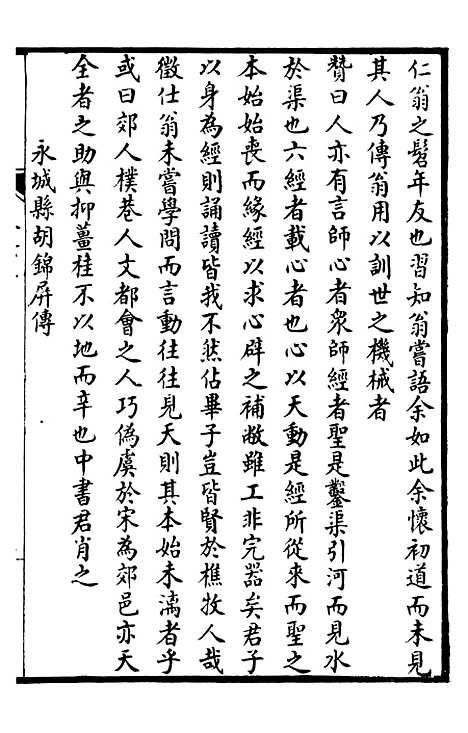 仁翁之髫年友也習知翁嘗語余如此余懷初道而未見
其人乃傳翁用以訓世之機械者
贊曰人亦有言師心者衆師經者聖是鑿渠引河而見水
於渠也六經者載心者也心以天動是經所從來而聖之
本始始喪而緣經以求心辟之補敝雖工非完器矣君子
以身為經則誦讀皆我不然佔畢子豈皆賢於樵牧人哉
徵仕翁未嘗學問而言動往往見天則其本始未漓者乎
或曰郊人樸巷人文都會之人巧偽虞於宋為郊邑亦天
全者之助與抑薑桂不以地而辛也中書君肖之
永城縣胡錦屏傳